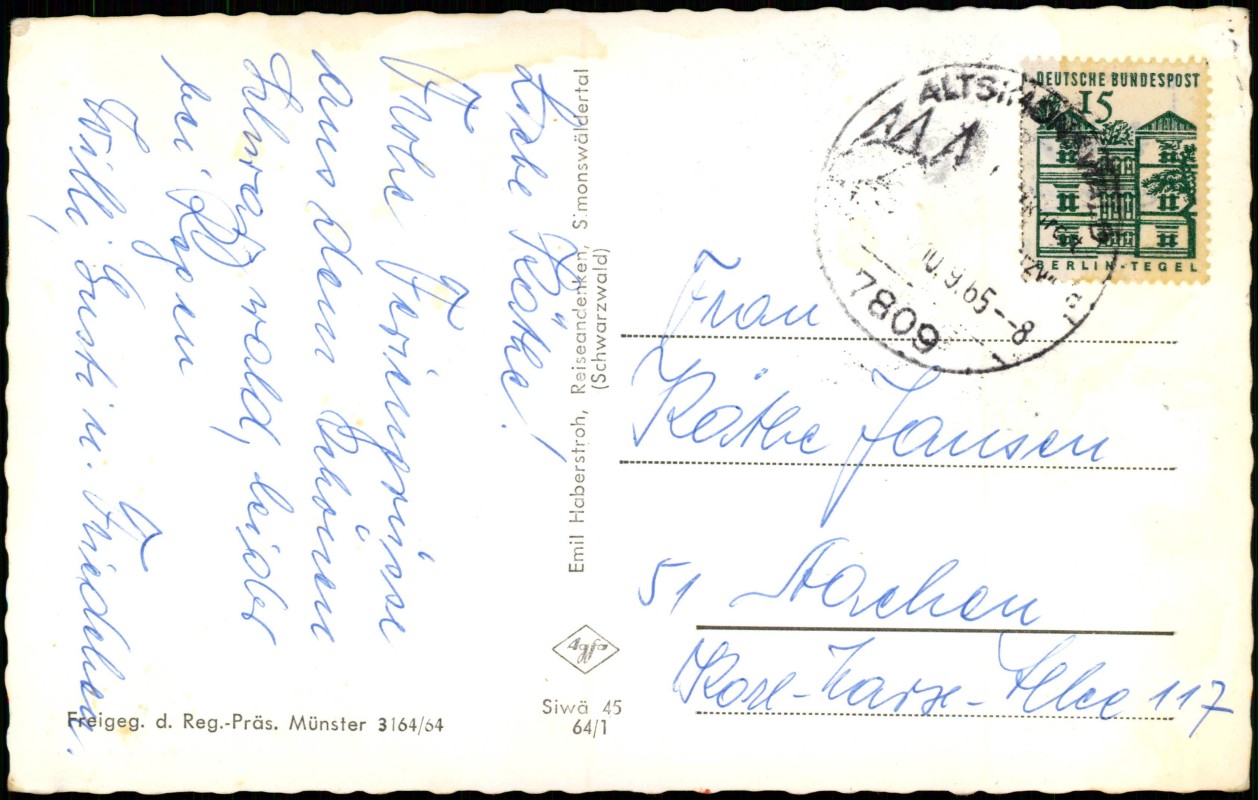 Liebe Käthe!
Frohe Feriengrüsse
aus dem schönen
Schwarzwald, leider
bei Regen
Willi, Gusti u. Friedchen.
Emil Haberstroh, Reiseandenken, Simonswäldertal
(Schwarzwald)
DEUTSCHE BUNDESPOST
15
BERLIN-TEGEL
10.9.65--8
7809
Frau
Käthe Jansen
51 Aachen
Karl-Marx-Allee 117
Agfa
Siwä 45
64/1
Freigeg. d. Reg.-Präs. Münster 3164/64